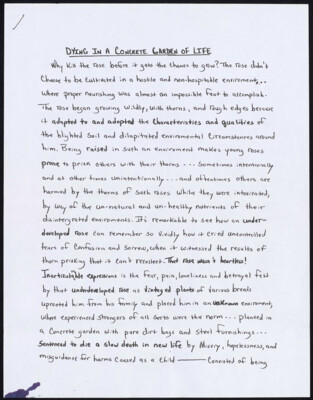 DYING IN A CONCRETE GARDEN OF LIFE
Why Kill the rose before it gets the chance to grow? The rose didn't
Choose to be Cultivated in a hostile and non-hospitable enviroment...
Where proper nourishing was almost an impossible feat to accomplish.
The rose began growing wildly, with thorns, and rough edges because
it adapted to and adopted the Characteristics and qualities of
the blighted Soil and dilapitated enviromental Circumstances around
him. Being raised in Such an enviroment makes young roses
prone to prick others with their thorns --- Sometimes intentionally
and at other times Unintentionally --- and oftentimes others are
harmed by the thorns of Such roses while they were intoxicated,
by way of the un-natural and un-healthy nutrients of their
disintegrated enviroments. It's remarkable to see how an under-
developed rose can remember So Vividly how it cried uncontrolled
tears of Confusion and Sorrow, when it witnessed the results of
thorn pricking that it can't recollect. That rose wasn't heartless!
Inarticulable expressions is the fear, pain, loneliness and betrayal felt
by that underdeveloped rose as vintaged plants of various breeds
uprooted him from his family and placed him in an unknown enviroment,
where experienced strangers of all Sorts were the norm --- planted in
a Concrete garden with pure dirt bags and Steel furnishings---
Sentenced to die a Slow death in new life by Misery, hopelessness, and
misguidance for harms Caused as a Child —— Consisted of being